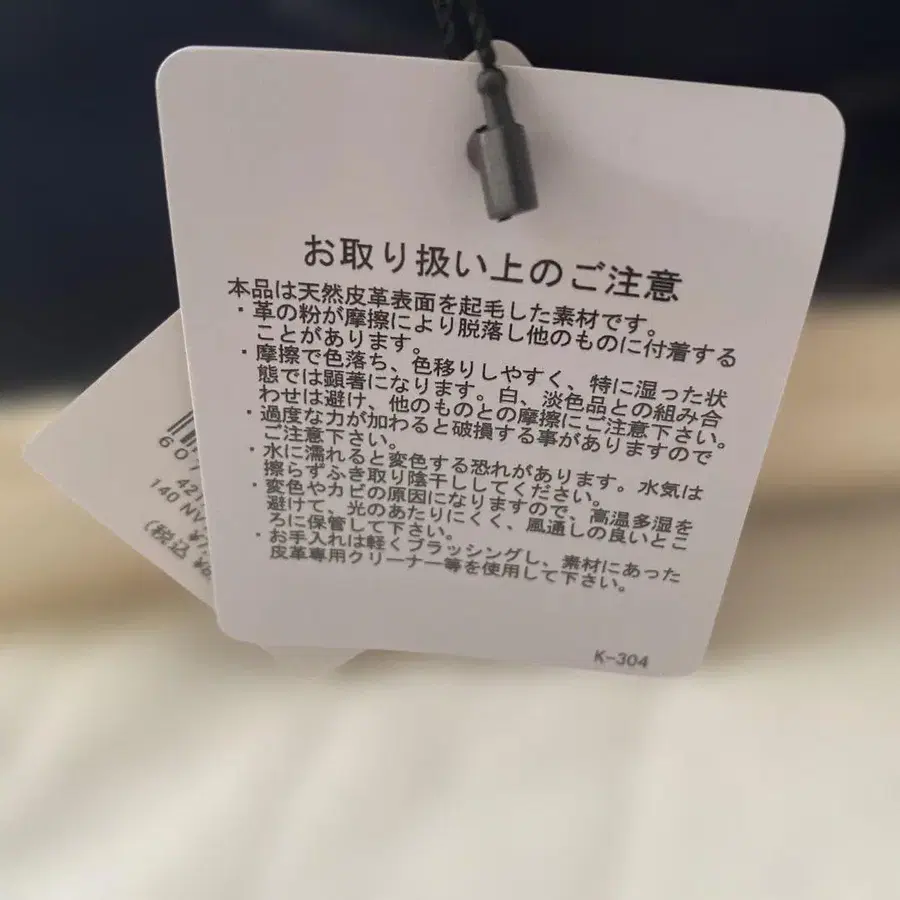 お取り扱い上のご注意
本品は天然皮革表面を起毛した素材です。
・革の粉が摩擦により脱落し他のものに付着する
ことがあります。
・摩擦で色落ち、色移りしやすく、特に湿った状
態では顕著になります。白、淡色品との組み合
わせは避け、他のものとの摩擦にご注意下さい。
・過度な力が加わると破損する事がありますので
ご注意下さい。
・水に濡れると変色する恐れがあります。水気は
擦らずふき取り陰干ししてください。
・変色やカビの原因になりますので、高温多湿を
避けて、光のあたりにくく、風通しの良いとこ
ろに保管して下さい。
・お手入れは軽くブラッシングし、素材にあった
皮革専用クリーナー等を使用して下さい。
K-304
140 NV
(税込